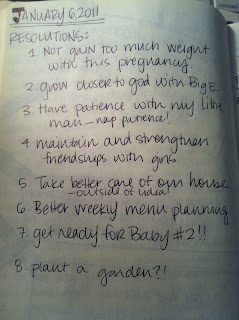 JANUARY 6, 2011
RESOLUTIONS:
1. NOT gain too much weight
with this pregnancy.
2. grow closer to god with Big E.
3. Have patience with my little
man - nap patience!
4 maintain and strengthen
friendships with girls
5. Take better care of our house
- outside of
6. Better weekly menu planning
7. get ready for Baby #2!!
8. plant a garden?!